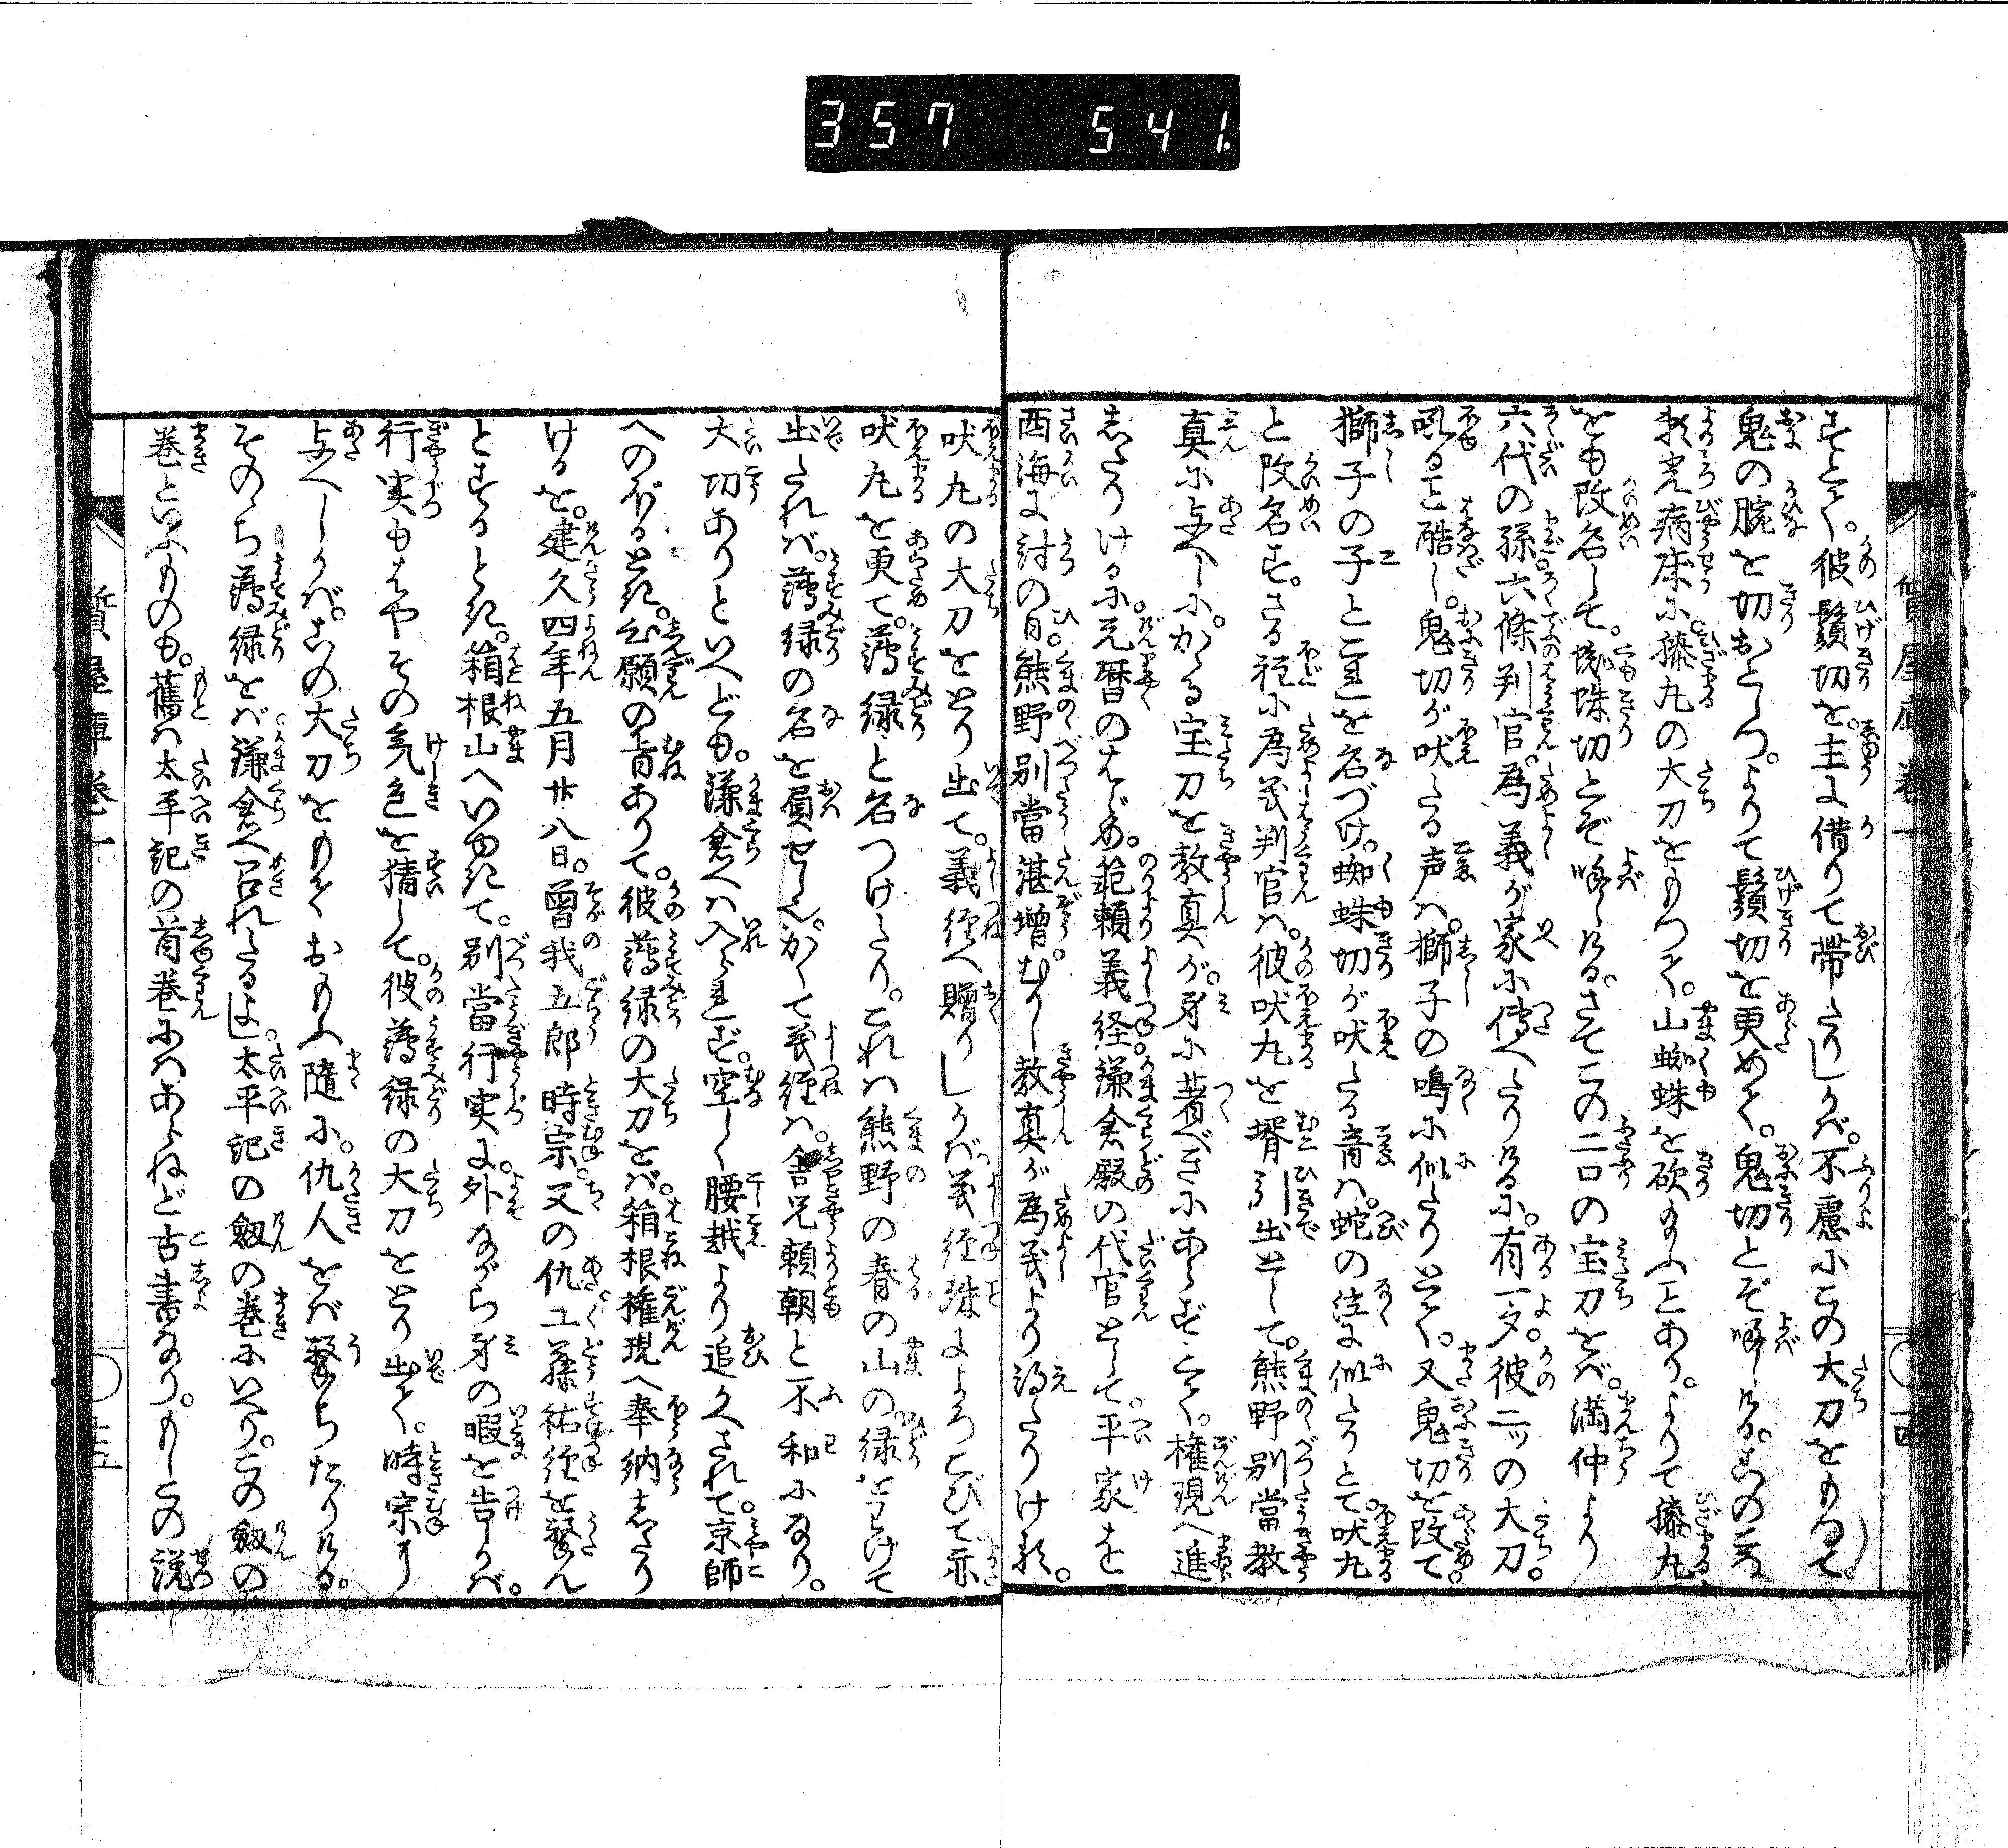 357 541.
質屋庫 巻一 ○ 四
すとて。彼鬚切を。主に借りて帯たりしかば。不慮にこの大刀をもて。
鬼の腕を切おとしつ。よりて鬚切を更めて。鬼切とぞ喚しける。この
頼光病床に。膝丸の大刀をもつて。山蜘蛛を砍給ふことあり。よりて膝丸
をも改名して。蜘蛛切とぞ喚しける。さてこの二口の宝刀をば。満仲より
六代の孫六條判官。為義が家に傳へたりけるに。有一夕。彼二ツの大刀。
吼ること酷し。鬼切が吠たる声は。獅子の鳴に似たりとて。又鬼切を改て。
獅子の子とこれを名づけ。蜘蛛切が吠たる音は。蛇の泣に似たりとて。吠丸
と改名す。さる程に為義判官は。彼吠丸を壻引出として。熊野別當教
真に与へしに。かゝる宝刀を教真が。身に着べきにあらずとて。権現へ進
したりけるに。元暦のはじめ。範頼義経。鎌倉殿の代官として。平家を
西海に討の日。熊野別當湛増。むかし教真が為義より得たりける。
吠丸の大刀をとり出て。義経へ贈りしかば義経殊によろこびて亦
吠丸を更て。薄緑と名つけたり。これは熊野の春の山の緑をわけて
出たれば。薄緑の名を負せしとぞ。かくて義経は。舎兄頼朝と不和になり。
大功ありといへども。鎌倉へは入られず。空しく腰越より追かへされて。京師
へのぼるとき。心願の旨ありて。彼薄緑の大刀をば。箱根権現へ奉納したり
けるを。建久四年五月廿八日。曽我五郎時宗。父の仇工藤祐経を撃ん
とするとき。箱根山へいゆきて。別當行実に。外ながら身の暇を告しかば。
行実もはやその気色を猜して。彼薄緑の大刀をとり出て。時宗に
与へしかば。この大刀をもておもふ隨に。仇人をば撃ちたりける。
そのゝち薄緑をば鎌倉へ召れたるよし。太平記の劔の巻にいへり。この劔の
巻といふものも。舊は太平記の首巻にはあらねど古書なり。もしこの説
質屋庫 巻一 ○ 五